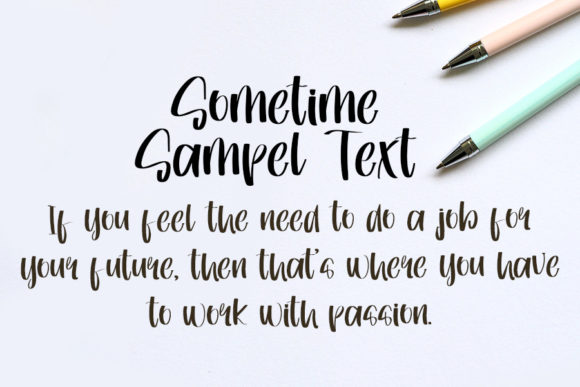 Sometime
Sampel Text
If you feel the need to do a job for
your future, then that's where you have
to work with passion.